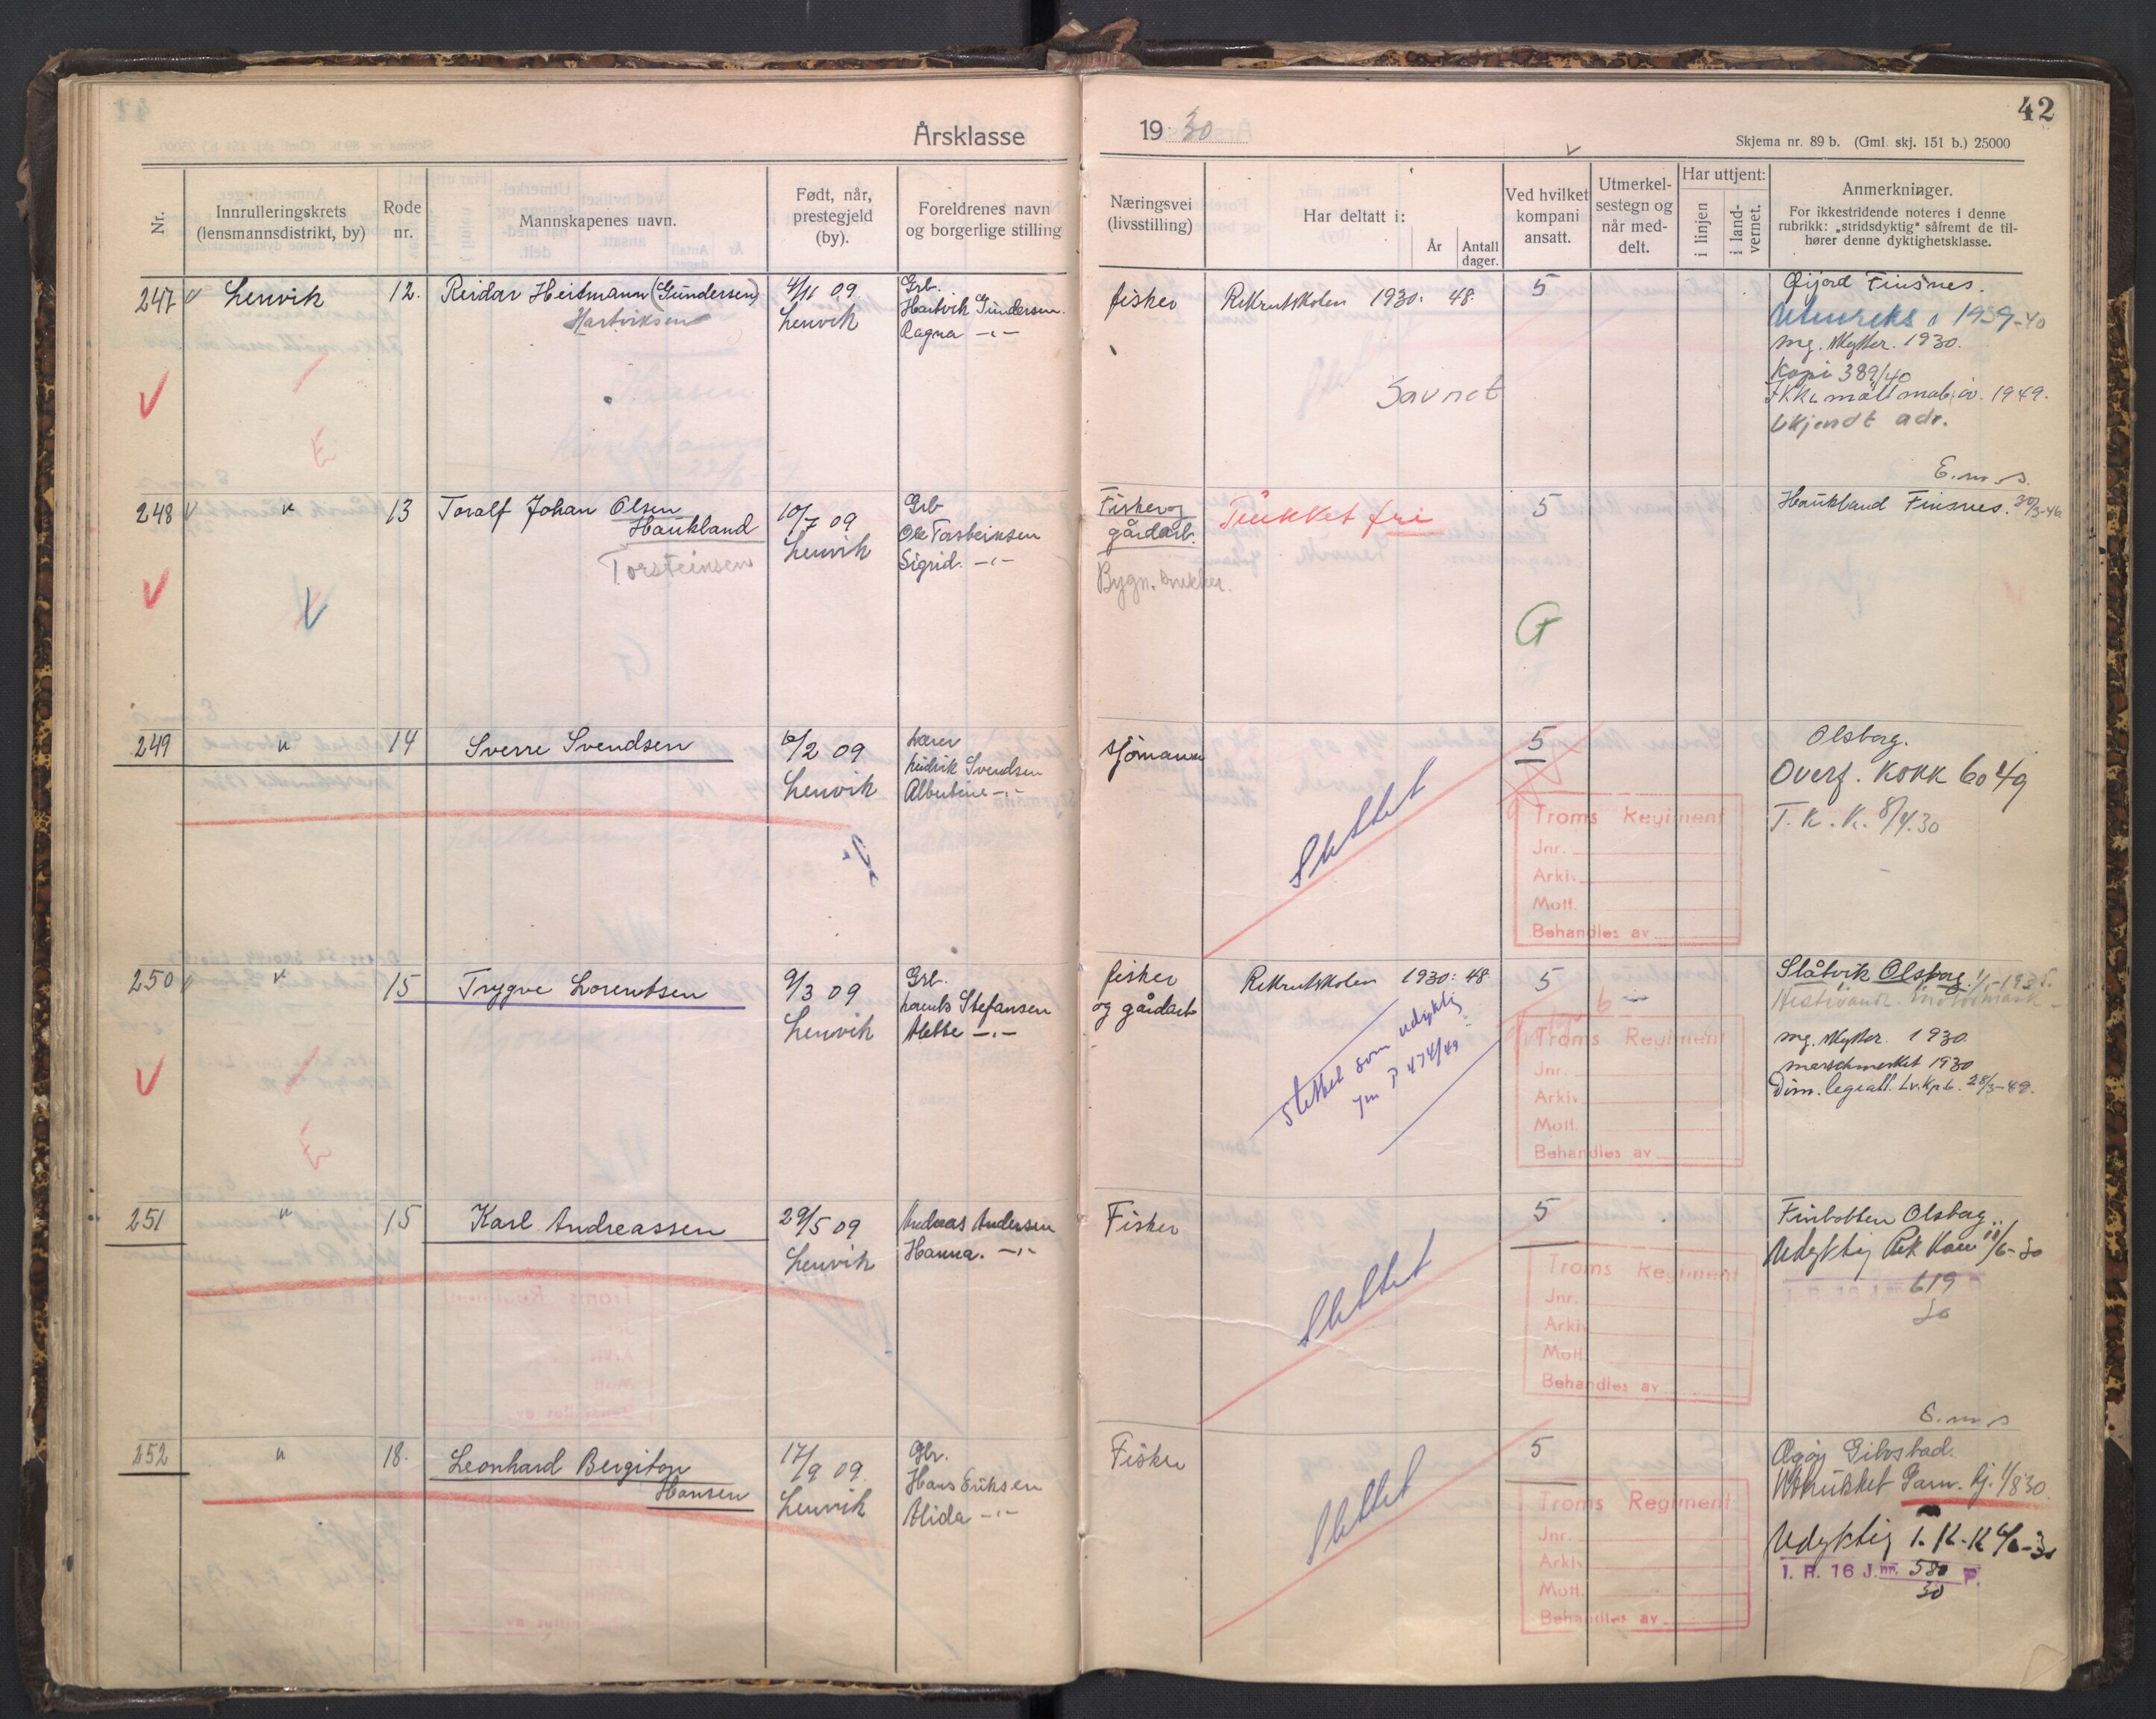 42
Årsklasse 1930
Skjema nr. 89 b. (Gml. skj. 151 b.) 25000
Nr.
Innrulleringskrets
(lensmannsdistrikt, by)
Rode
nr.
Mannskapenes navn.
Født, når,
prestegjeld
(by).
Foreldrenes navn
og borgerlige stilling
Næringsvei
(livsstilling)
Har deltatt i:
År
Antall
dager.
Ved hvilket
kompani
ansatt.
Utmerkel-
sestegn og
når med-
delt.
Har uttjent:
i linjen
i land-
vernet.
Anmerkninger.
For ikkestridende noteres i denne
rubrikk: „stridsdyktig" såfremt de til-
hører denne dyktighetsklasse.
247 Lenvik 12. Reidar Heitmann (Gundersen)
Hartviksen
4/11 09
Lenvik
Grb.
Hartvik Gundersen.
Ragna -"-
fisker
Rekrutskolen 1930: 48.
Savnet
5
Gijord Finsnes.
Utenriks 1939-40
mg. skytter. 1930.
Kopi 389/40
Ikke møtt mob. øv. 1949.
Ukjendt adr.
E. m. s.
248 " 13 Toralf Johan Olsen
Haukland
Torsteinsen
10/7 09
Lenvik
Grb
Ole Torsteinsen
Sigrid. -"-
Fisker og
gårdarb.
Bygn.
Trukket fri
5
G
Haukland Finsnes. 30/3-46
249 " 14 Sverre Svendsen
10/2 09
Lenvik
Lærer
Hedrik Svendsen
Albertine -"-
sjömann
Slettet
5
Troms Regiment
Jnr.
Arkiv
Mott.
Behandles av
Olsborg.
Overf. KORK 6049
T. K. K. 8/4.30
250 " 15 Trygve Lorentsen
9/3 09
Lenvik
Grb.
Lorents Stefansen
Alette -"-
fisker
og gårdarb
Rekrutskolen 1930: 48
slettet som udyktig
jnr P 474/49
5
6
Troms Regiment
Jnr.
Arkiv
Mott.
Behandles av
Slåtvik Olsborg.
mg. skytter. 1930.
marschmerket 1930
Dim. legeatt. Lv. Kp. 6. 28/3-49.
251 " 15 Karl Andreassen
29/5 09
Lenvik
Andreas Andersen
Hanna. -"-
Fisker
Slettet
5
Troms Regiment
Jnr.
Arkiv
Mott.
Behandles av
Finbotten Olsborg.
Udyktig Rek 11/6-30
619
30
E. m. s
252 " 18. Leonhard Bergiton
Hansen
17/9 09.
Lenvik
Gbr.
Hans Eriksen
Alida -"-
Fisker
Slettet
5
Troms Regiment
Jnr.
Arkiv
Mott.
Behandles av
Gibostad.
Utrukket Garn. kj. 1/8 30.
Udyktig T. K. K 4/6-30
I. R. 16 J.nr. 580 P.
30